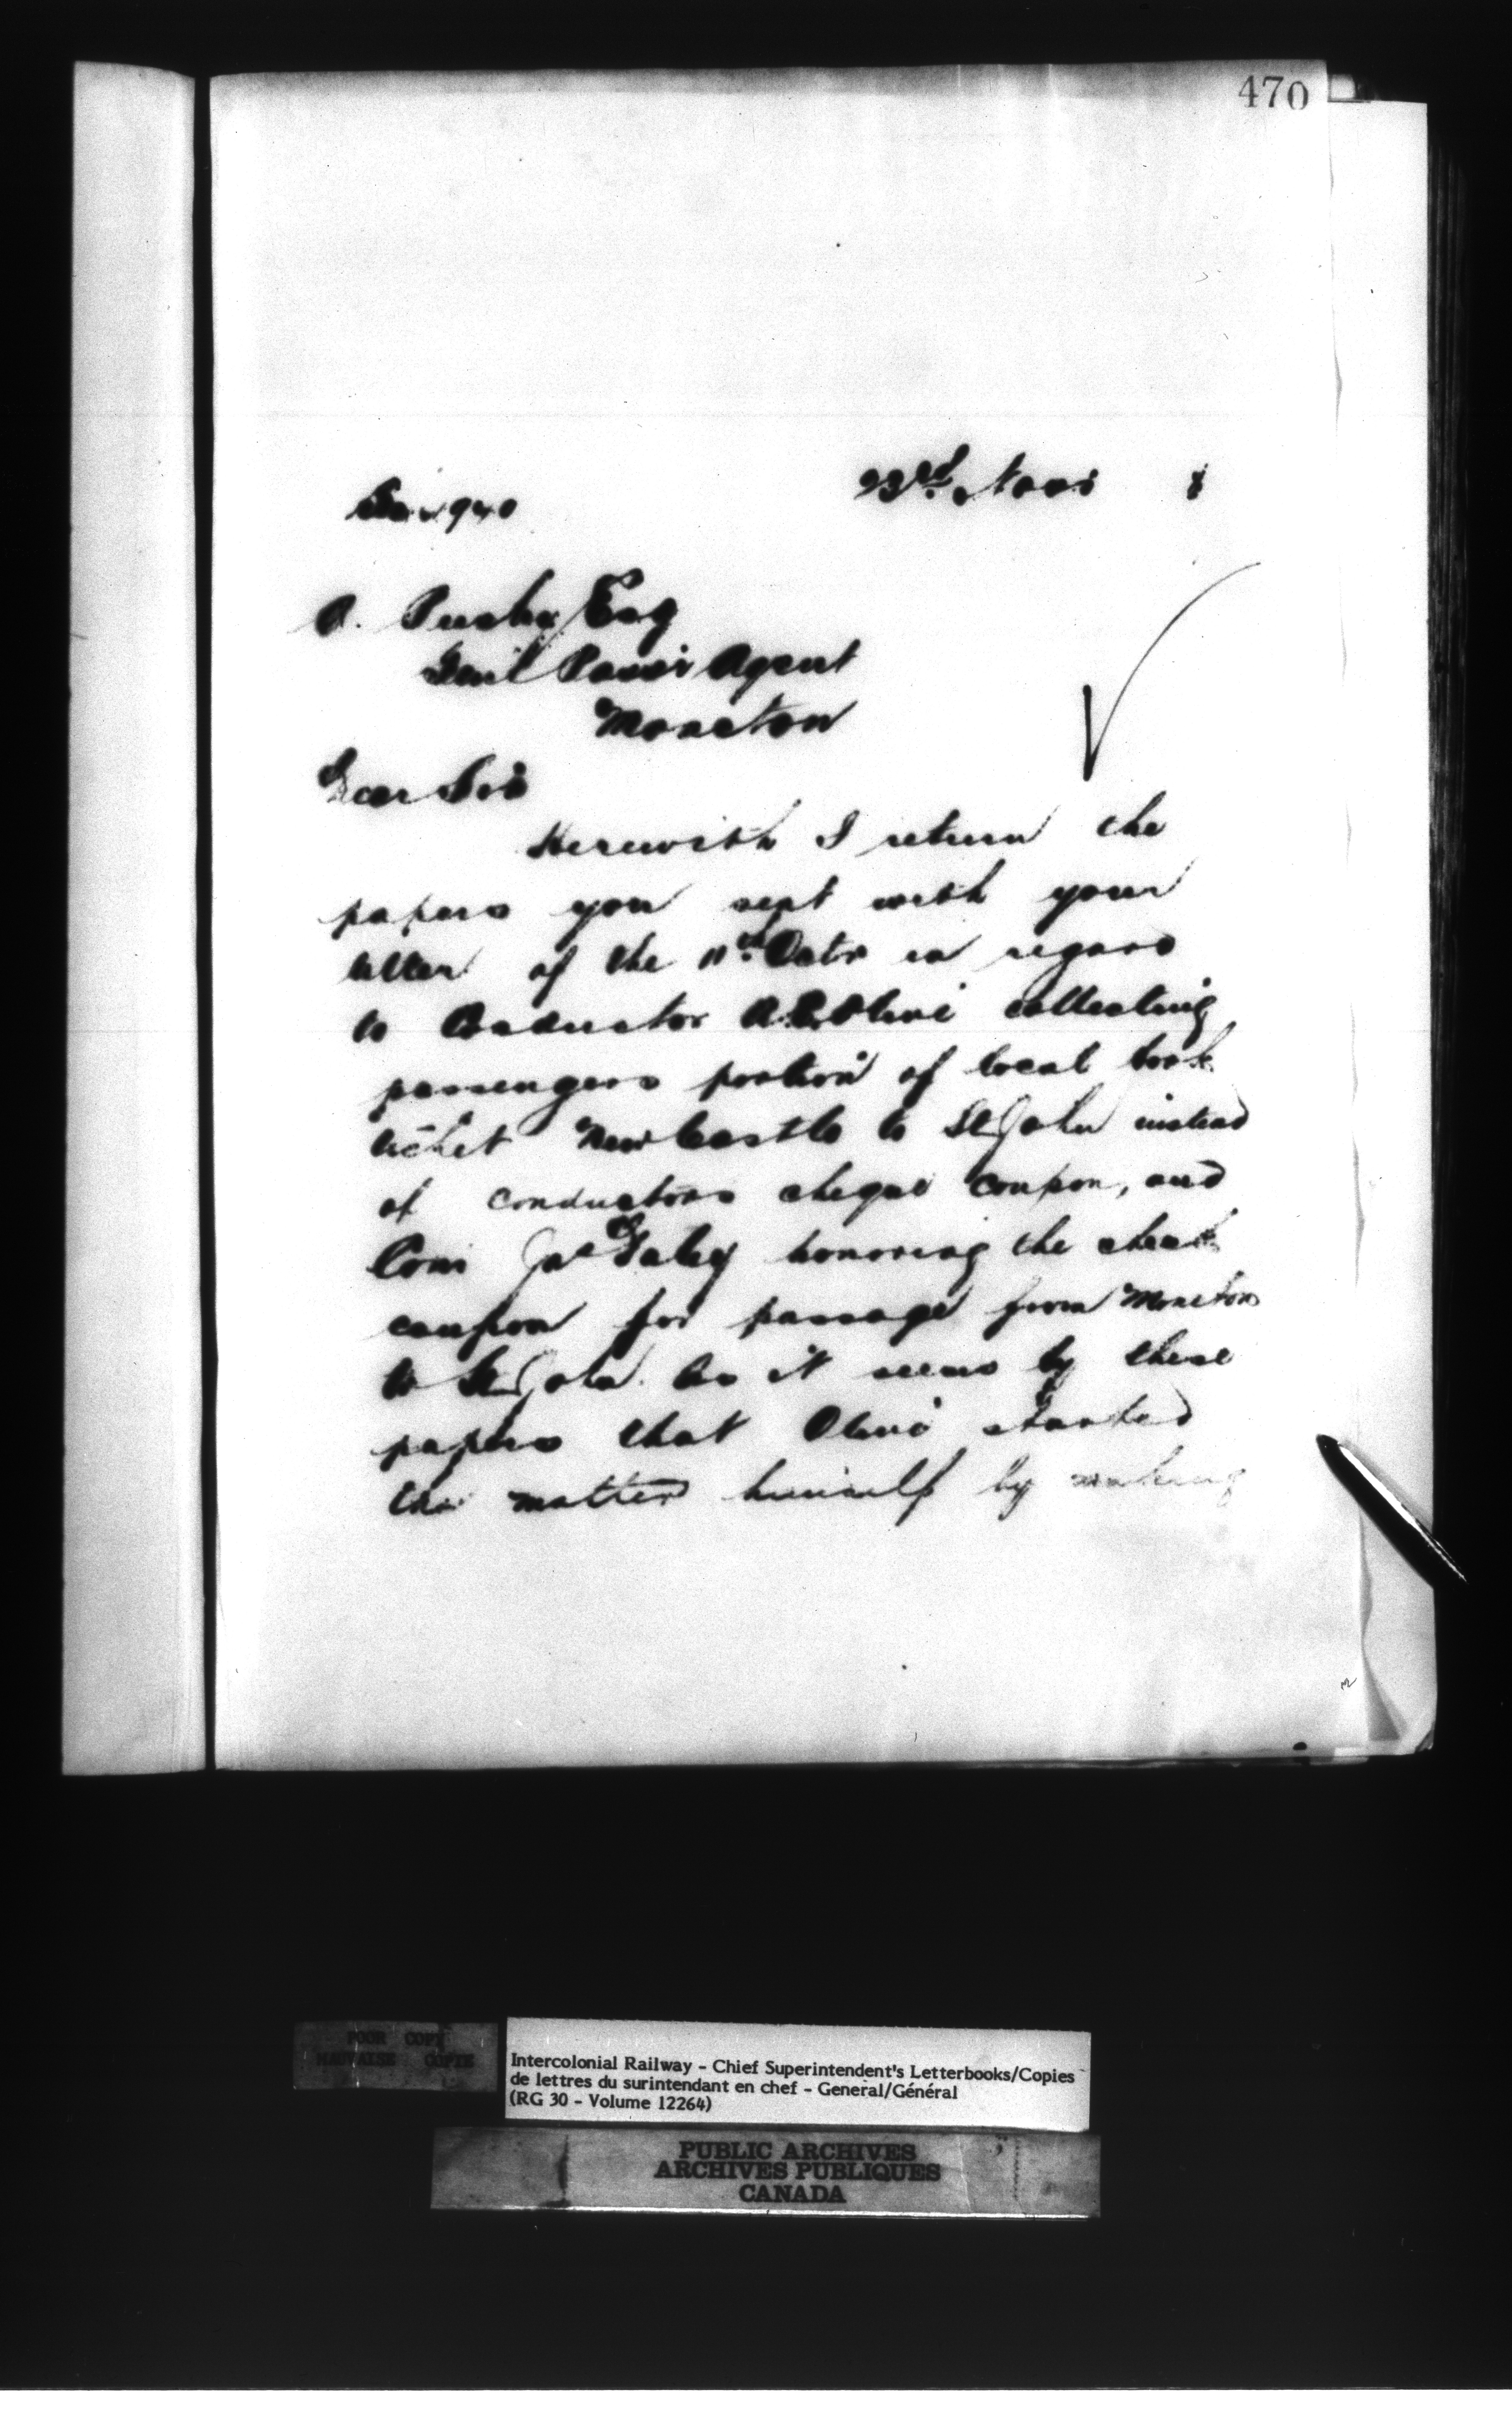 470
23rd Novr 8
940
A. Busby Esq
Genl Passr Agent
Moncton
Dear Sir
Herewith I return the
papers you sent with your
letter of the 11th Octr in regard
to Conductor A. Olive collecting
passengers portion of local book
ticket New Castle to St John instead
of conductors cheque coupon, and
Con Jas Fahey honoring the check
coupon for passage from Moncton
to St John. As it seems by these
papers that Olive started
the matter himself by making
POOR COPY
MAUVAISE COPIE
Intercolonial Railway - Chief Superintendent's Letterbooks/Copies
de lettres du surintendant en chef - General/Général
(RG 30 - Volume 12264)
PUBLIC ARCHIVES
ARCHIVES PUBLIQUES
CANADA